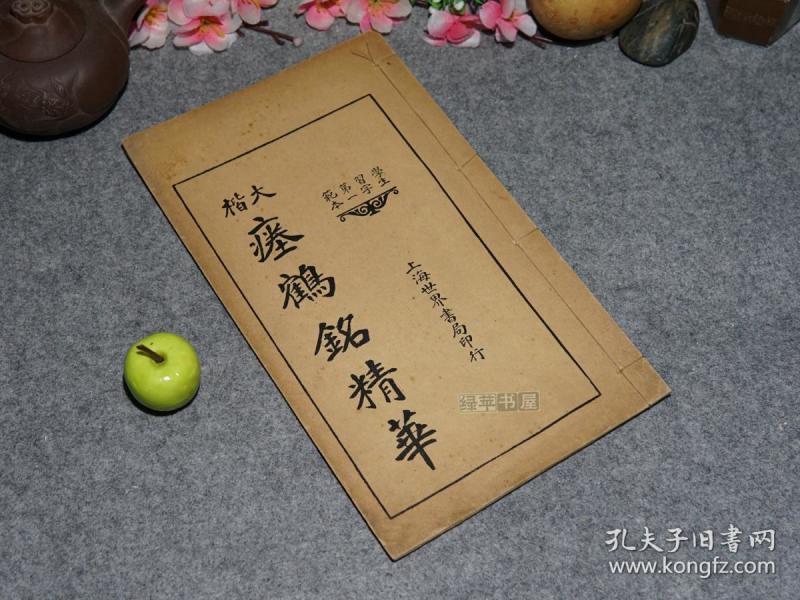 學生
習字
第一
範本
大楷
瘞鶴銘精華
上海世界書局印行
绿苹书屋
孔夫子旧书网
www.kongfz.com